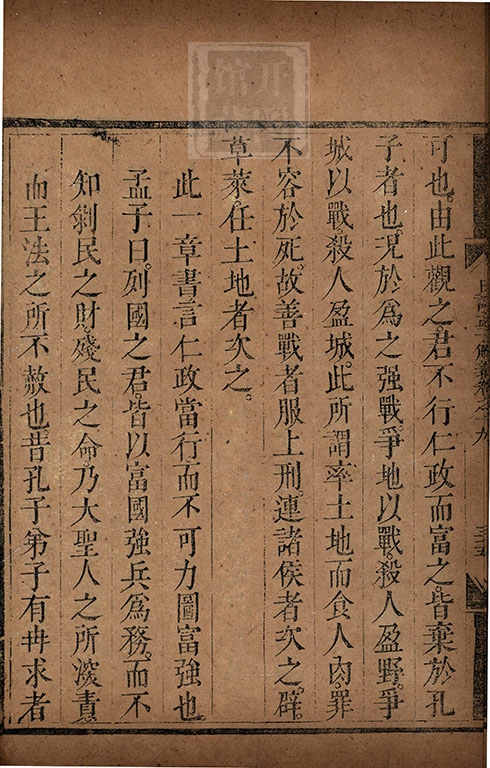 可也。由此觀之。君不行仁政而富之。皆棄於孔
子者也。况於爲之强戰。爭地以戰。殺人盈野。爭
城以戰。殺人盈城。此所謂率土地而食人肉。罪
不容於死。故善戰者服上刑。連諸侯者次之。辟
草萊。任土地者次之。
此一章書言仁政當行而不可力圖富強也。
孟子曰。列國之君。皆以富國強兵爲務。而不
知剝民之財。殘民之命。乃大聖人之所深責。
而王法之所不赦也。昔孔子弟子有冉求者
日講四書解義卷之九